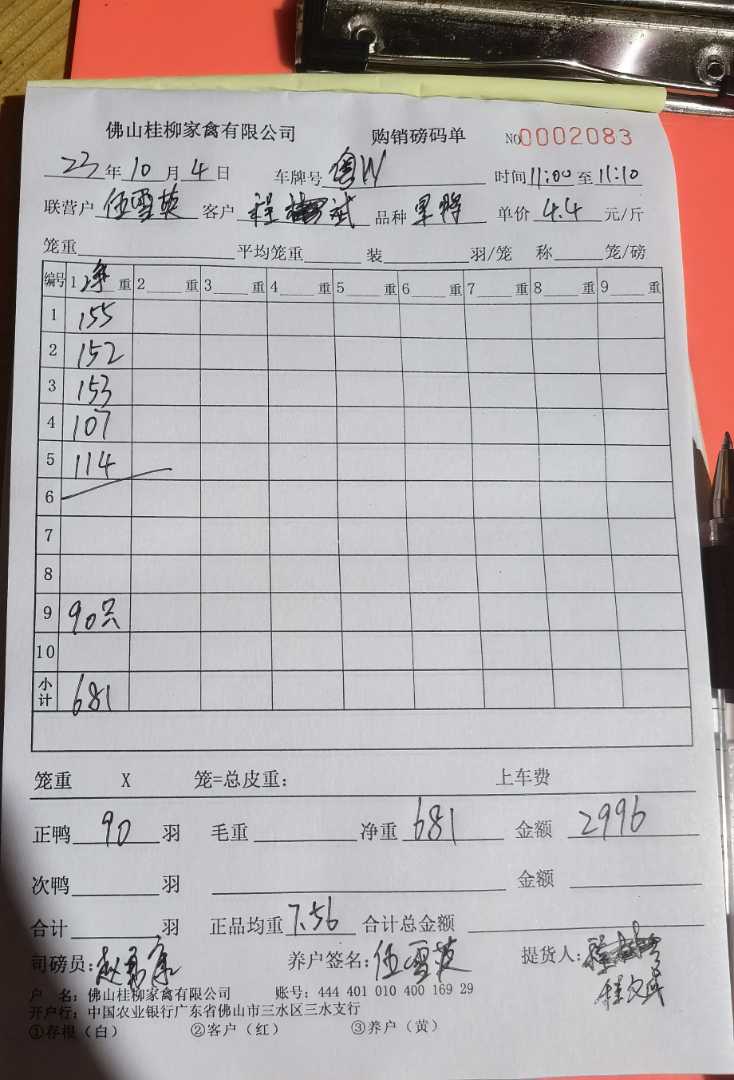 佛山桂柳家禽有限公司 购销磅码单 NO0002083
23年10月4日 车牌号 粤W 时间11:00至11:10
联营户 伍雪英 客户 程斌 品种 单价 4.4 元/斤
笼重 平均笼重 装 羽/笼 称 笼/磅
编号 1 净 重 2 重 3 重 4 重 5 重 6 重 7 重 8 重 9 重
1 155
2 152
3 153
4 107
5 114
6
7
8
9 90只
10
小计 681
笼重 X 笼=总皮重: 上车费
正鸭 90 羽 毛重 净重 681 金额 2996
次鸭 羽 金额
合计 羽 正品均重 7.56 合计总金额
司磅员: 养户签名: 伍雪英 提货人: 程
户 名: 佛山桂柳家禽有限公司 账号: 444 401 010 400 169 29
开户行: 中国农业银行广东省佛山市三水区三水支行
①存根(白) ②客户(红) ③养户(黄)